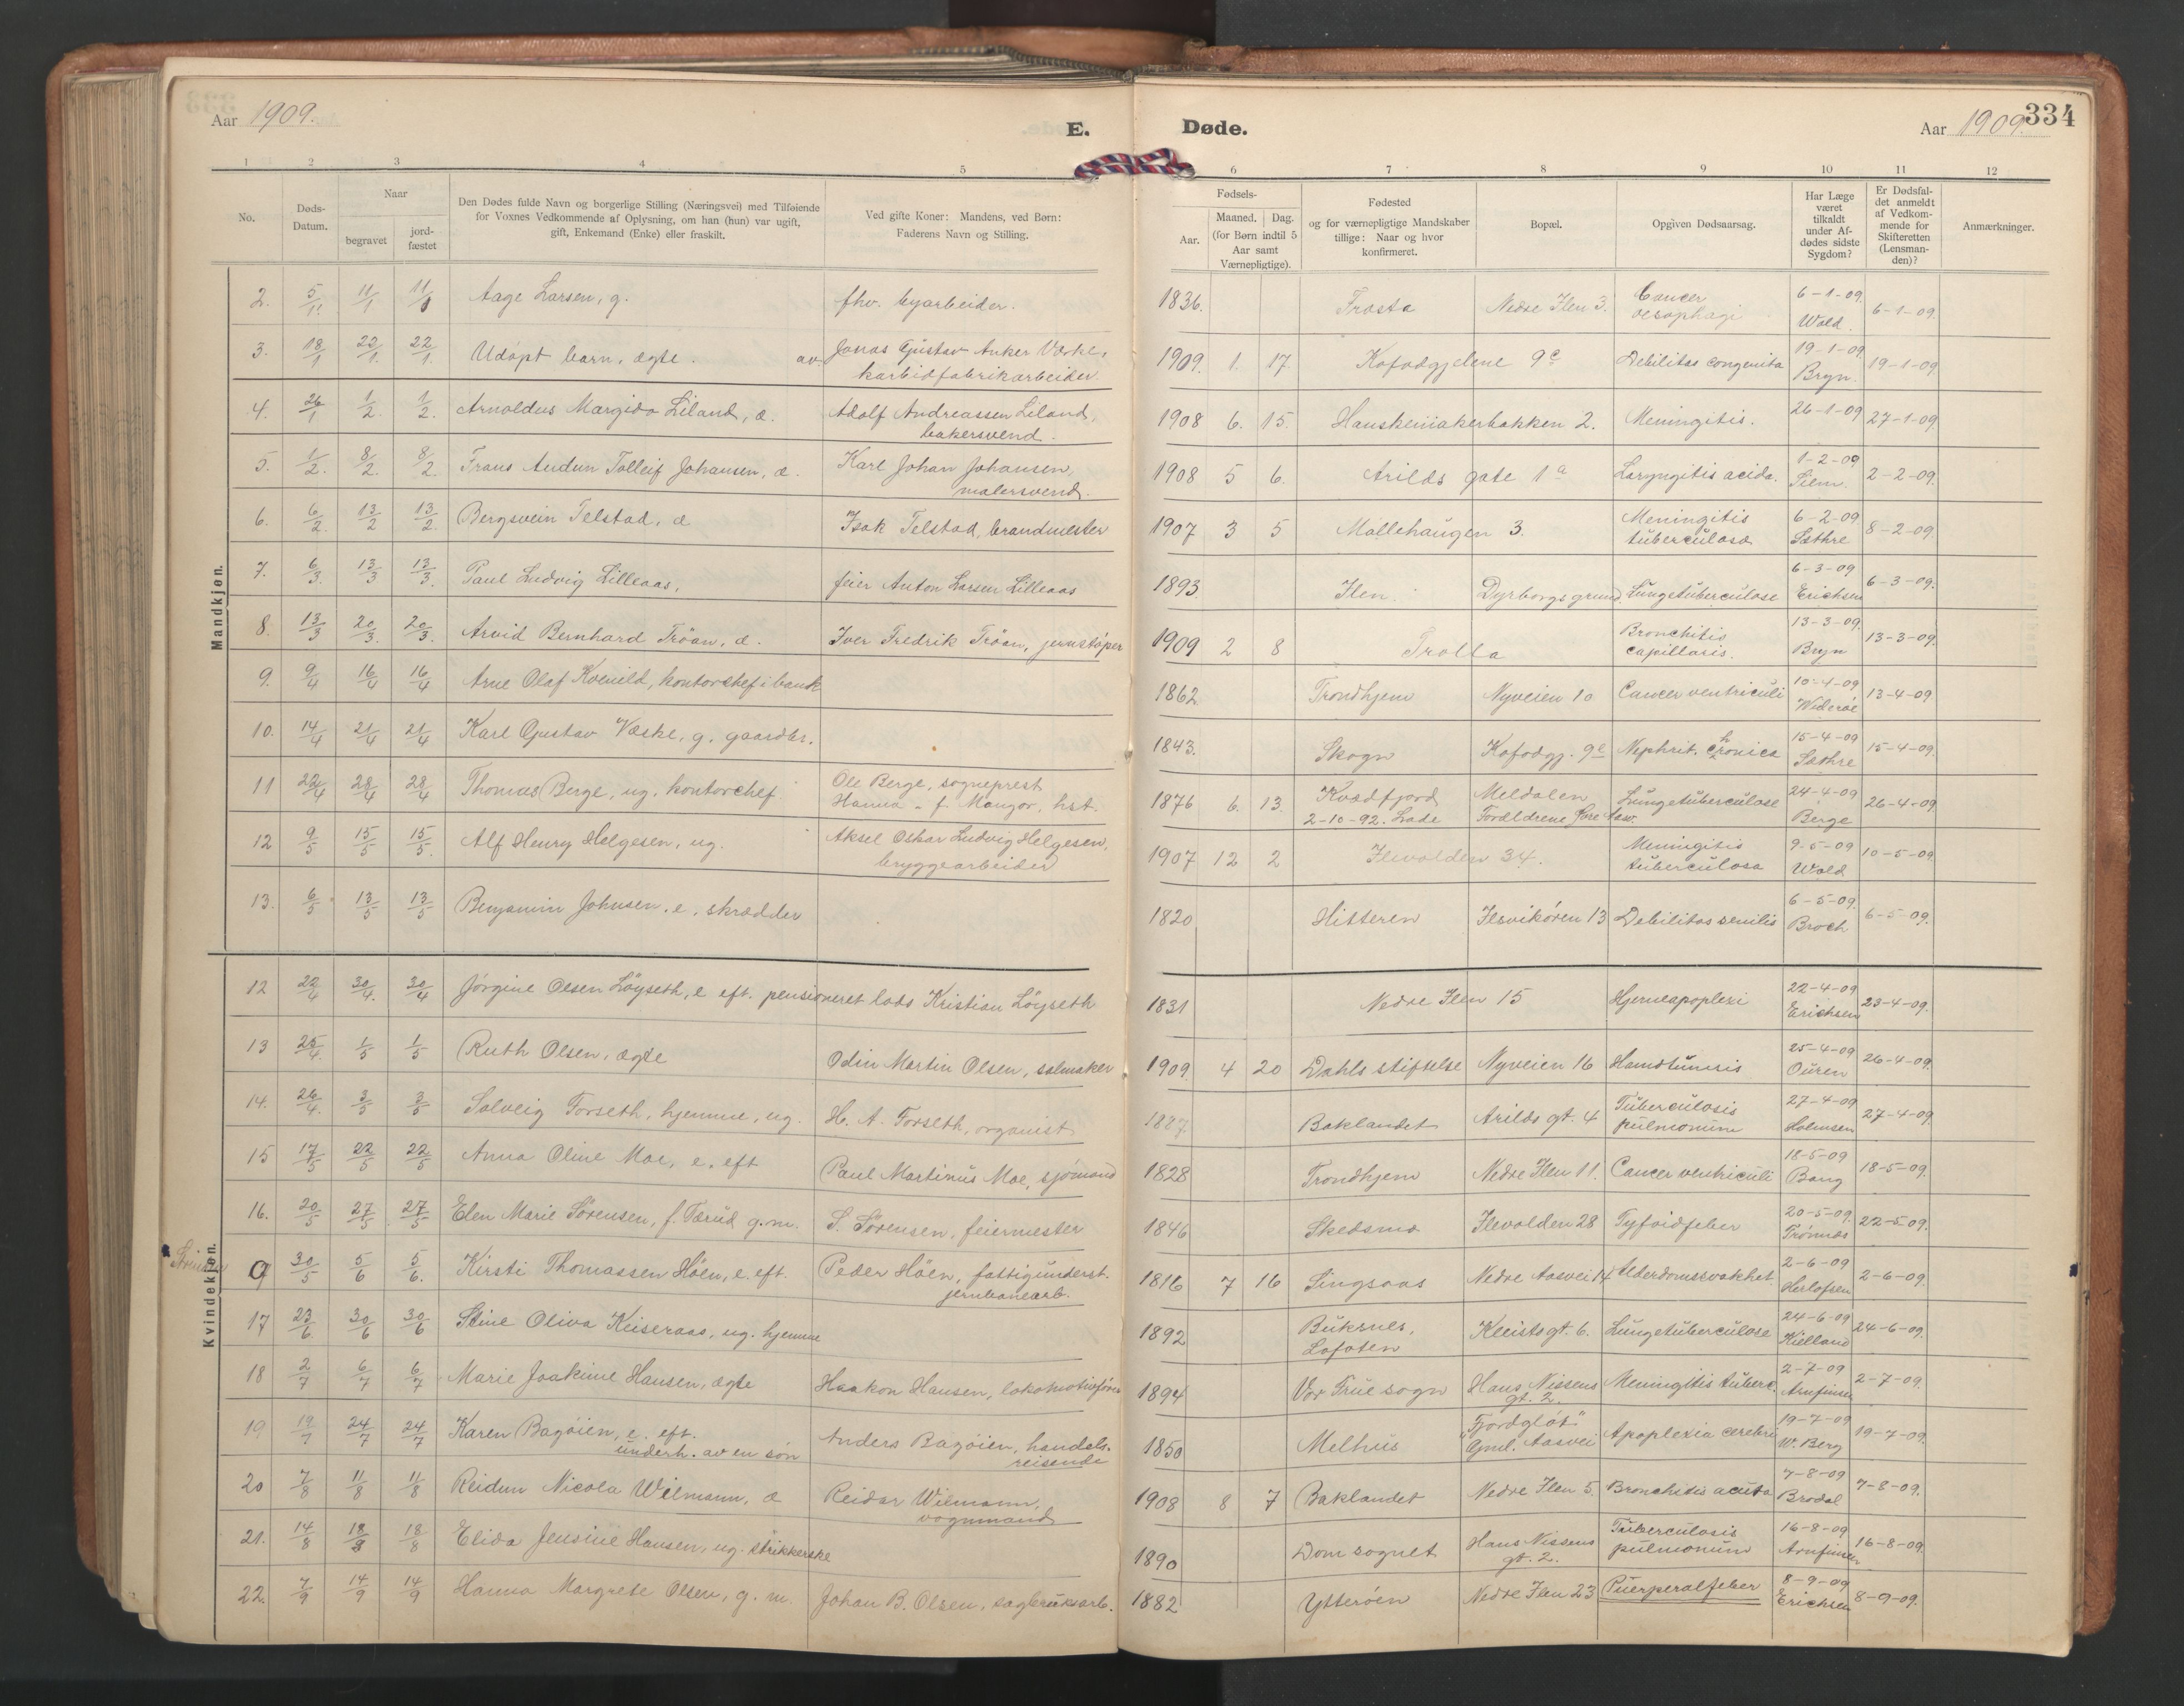 Aar 1909.
E.
Døde.
Aar 1909.
334
1 2 3 4 5 6 7 8 9 10 11 12
No.
Døds-Datum.
Naar
begravet
jord-fæstet
Den Dødes fulde Navn og borgerlige Stilling (Næringsvei) med Tilføiende
for Voxnes Vedkommende af Oplysning, om han (hun) var ugift,
gift, Enkemand (Enke) eller fraskilt.
Ved gifte Koner: Mandens, ved Børn:
Faderens Navn og Stilling.
Fødsels-
Aar.
Maaned. Dag.
(for Børn indtil 5
Aar samt
Værnepligtige).
Fødested
og for værnepligtige Mandskaber
tillige: Naar og hvor
konfirmeret.
Bopæl.
Opgiven Dødsaarsag.
Har Læge
været
tilkaldt
under Af-
dødes sidste
Sygdom?
Er Dødsfal-
det anmeldt
af Vedkom-
mende for
Skifteretten
(Lensman-
den)?
Anmærkninger.
Mandkjøn.
2. 5/1 11/1 11/1 Aage Larsen, g. fhv. byarbeider. 1836. Frosta Nedre Ilen 3. Cancer oesophagi 6-1-09. Wold. 6-1-09.
3. 18/1 22/1. 22/1. Udøpt barn, ægte. av Jonas Gustav Anker Værke, karbidfabrikarbeider. 1909. 1. 17. Kofodgjelene 9c Debilitas congenita 19-1-09. Bryn. 19-1-09.
4. 26/1 1/2. 1/2. Arnoldus Margido Liland, æ. Adolf Andreassen Liland, bakersvend. 1908 6. 15. Hanskemakerbakken 2. Meningitis. 26-1-09 27-1-09.
5. 1/2. 8/2. 8/2. Frans Audun Tolleif Johansen, æ. Karl Johan Johansen, malersvend. 1908 5 6. Arilds gate 1a Laryngitis acida. 1-2-09 2-2-09.
6. 6/2. 13/2 13/2. Bergsvein Telstad, æ Isak Telstad, brandmester 1907 3 5 Mallehaugen 3. Meningitis tuberculosa 6-2-09. Sæthre 8-2-09.
7. 6/3. 13/3 13/3. Paul Ludvig Lilleaas, feier Anton Larsen Lilleaas 1893 Ilen. Dyrborgs grund. Lungetuberculose 6-3-09 Erichsen 6-3-09.
8. 13/3 20/3. 20/3. Arvid Bernhard Tröan, æ. Iver Fredrik Tröan, jernstöper 1909 2 8 Trolla Bronchitis capillaris. 13-3-09. Bryn 13-3-09.
9. 9/4 16/4 16/4 Arne Olaf Kvenild, kontorchef i bank 1862 Trondhjem Nyveien 10 Cancer ventriculi 10-4-09 Wideröe 13-4-09
10. 14/4 21/4 21/4 Karl Gustav Væske, g. gaardbr. 1843. Skogn Kofodgj. 9c Nephrit. chronica 15-4-09 Sæthre 15-4-09.
11 22/4 28/4 28/4 Thomas Berge, ug. kontorchef. Ole Berge, sogneprest Hanna " f. Mangor, hst. 1876 6. 13. Kvædfjord 2-10-92. Lade Meldalen Forældrene Lungetuberculose 24-4-09 Berge 26-4-09.
12 9/5 15/5 15/5. Alf Henry Helgesen, ug. Aksel Oskar Ludvig Helgesen, bryggearbeider 1907 12 2 Ilevolden 34. Meningitis tuberculosa 9-5-09 Wold 10-5-09
13. 6/5 13/5 13/5 Benjamin Johnsen, e, skrædder 1820 Hitteren Ilsvikören 13 Debilitas senilis 6-5-09. Broch 6-5-09.
Kvindekjøn.
12 22/4 30/4. 30/4 Jörgine Olsen Löyseth, e eft. pensioneret lods Kristian Löyseth 1831 Nedre Ilen 15 Hjerneapoplexi 22-4-09 Erichsen 23-4-09.
13 25/4. 1/5 1/5 Ruth Olsen, ægte Odin Martin Olsen, salmaker 1909. 4 20 Dahls stiftelse Nyveien 16 25-4-09 Ouren 26-4-09.
14. 26/4. 3/5 3/5 Solveig Forseth, hjemme, ug. H. A. Forseth, organist 1887. Baklandet Arilds gt. 4 Tuberculosis pulmonum 27-4-09 Holmsen 27-4-09.
15 17/5 22/5 22/5 Anna Oline Moe, e. eft Paul Martinus Moe, sjömand 1828 Trondhjem Nedre Ilen 11. Cancer ventriculi 18-5-09 Bang 18-5-09.
16. 20/5 27/5 27/5 Elen Marie Sörensen, f. Tærud g.m. S. Sörensen, feiermester 1846 Skedsmo Ilevolden 28 Tyfoidfeber 20-5-09. Trönnes 22-5-09.
9 30/5 5/6 5/6. Kirsti Thomassen Höen, e. eft. Peder Höen, fattigunderst. jernbanearb. 1816 7 16 Singsaas Nedre Aasvei 14 Alderdomssvakhet 2-6-09 Herlofsen 2-6-09.
17 23/6 30/6 30/6 Stine Oliva Keiseraas, ug. hjemme 1892 Buksnes, Lofoten Kleists gt. 6. Lungetuberculose 24-6-09 Kielland 24-6-09.
18 2/7 6/7 6/7 Marie Joakime Hansen, ægte Haakon Hansen, lokomotivförer 1894 Vor Frue sogn Hans Nissens gt. 2. Meningitis tuberc. 2-7-09 Arnfinsen 2-7-09.
19 19/7 24/7 24/7 Karen Bagöien, e. eft. underh. av en sön Anders Bagöien, handels-reisende 1850 Melhus "Fjordglöt" Gml. Aasvei Apoplexia cerebri 19-7-09 W. Berg 19-7-09.
20 7/8 11/8 11/8 Reidun Nicola Wilmann, æ Reidar Wilmann, vognmand 1908 8 7 Baklandet Nedre Ilen 5. Bronchitis acuta 7-8-09 Brodal 7-8-09.
21. 14/8 18/8 18/8 Elida Jensine Hansen, ug. strikkerske 1890 Dom sognet Hans Nissens gt. 2. Tuberculosis pulmonum 16-8-09 Arnfinsen 16-8-09.
22. 7/9 14/9 14/9 Hanna Margrete Olsen, g. m. Johan B. Olsen, sagbruksarb. 1882 Ytteröen Nedre Ilen 23 Puerperalfeber 8-9-09 Erichsen 8-9-09.